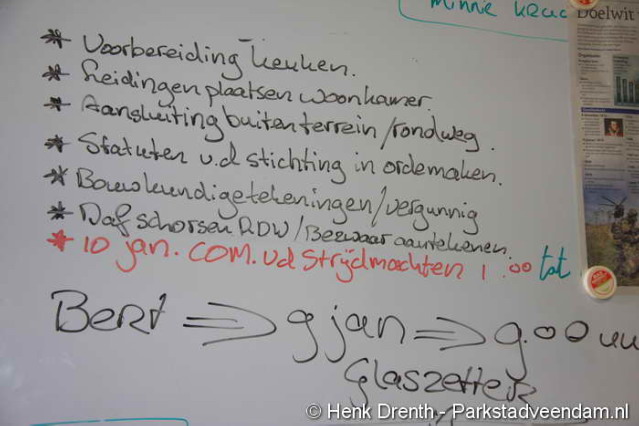 Minne
Doelwit
* Voorbereiding keuken.
* Leidingen plaatsen woonkamer.
* Aansluiting buitenterrein/rondweg.
* Statuten v.d stichting in ordemaken.
* Bouwkundigetekeningen/vergunnig
* Daf schorsen RDW/Bezwaar aantekenen.
* 10 jan. COM. vd Strijdmachten 1.00 tot
Bert => 9 jan => 9.00 uu
Glaszetter
© Henk Drenth - Parkstadveendam.nl